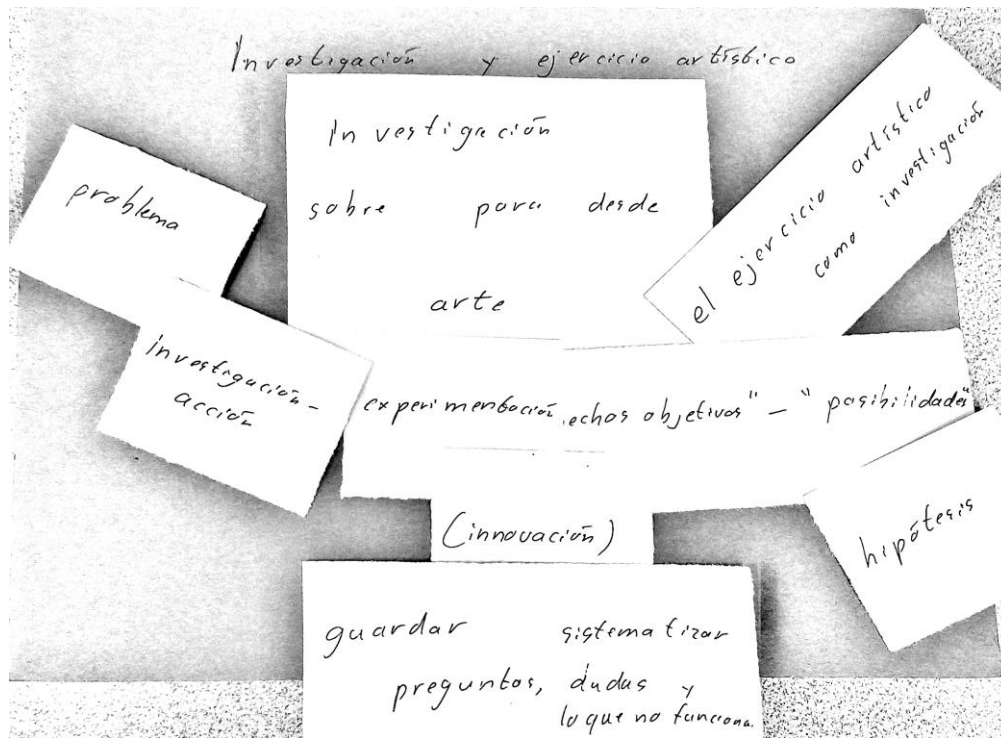 Investigación y ejercicio artístico
Investigación
sobre para desde
arte
problema
el ejercicio artístico
como investigación
investigación-
acción
experimentación
echos objetivos" - "posibilidades"
hipótesis
(innovación)
guardar sistematizar
preguntas, dudas y
lo que no funciona.